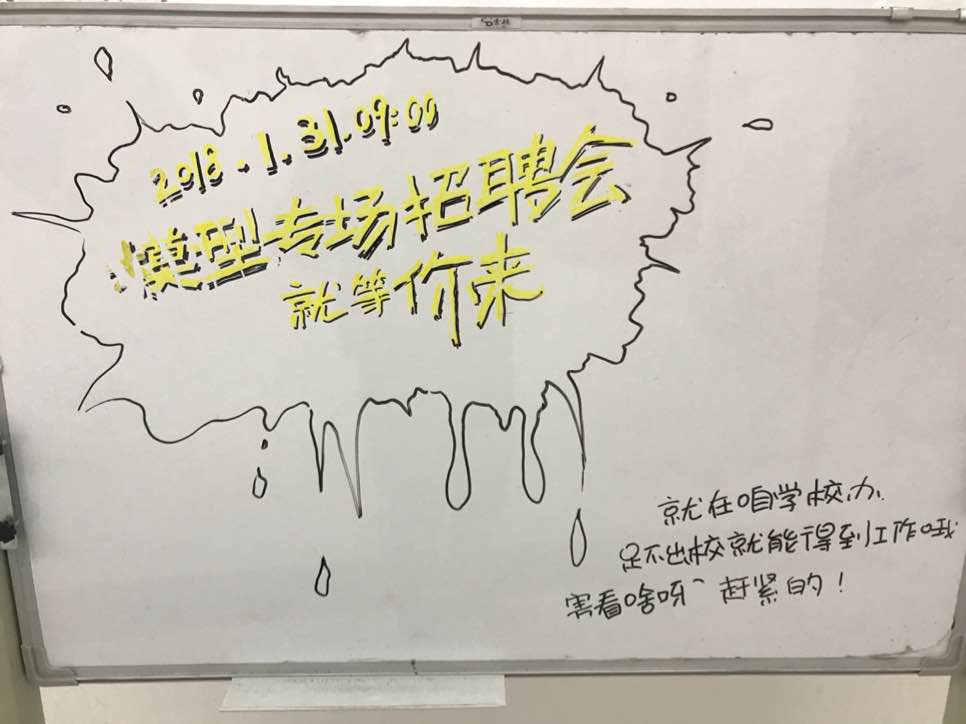 2018.1.31.09:00
模型专场招聘会
就等你来
就在咱学校办
足不出校就能得到工作哦
害看啥呀~赶紧的!